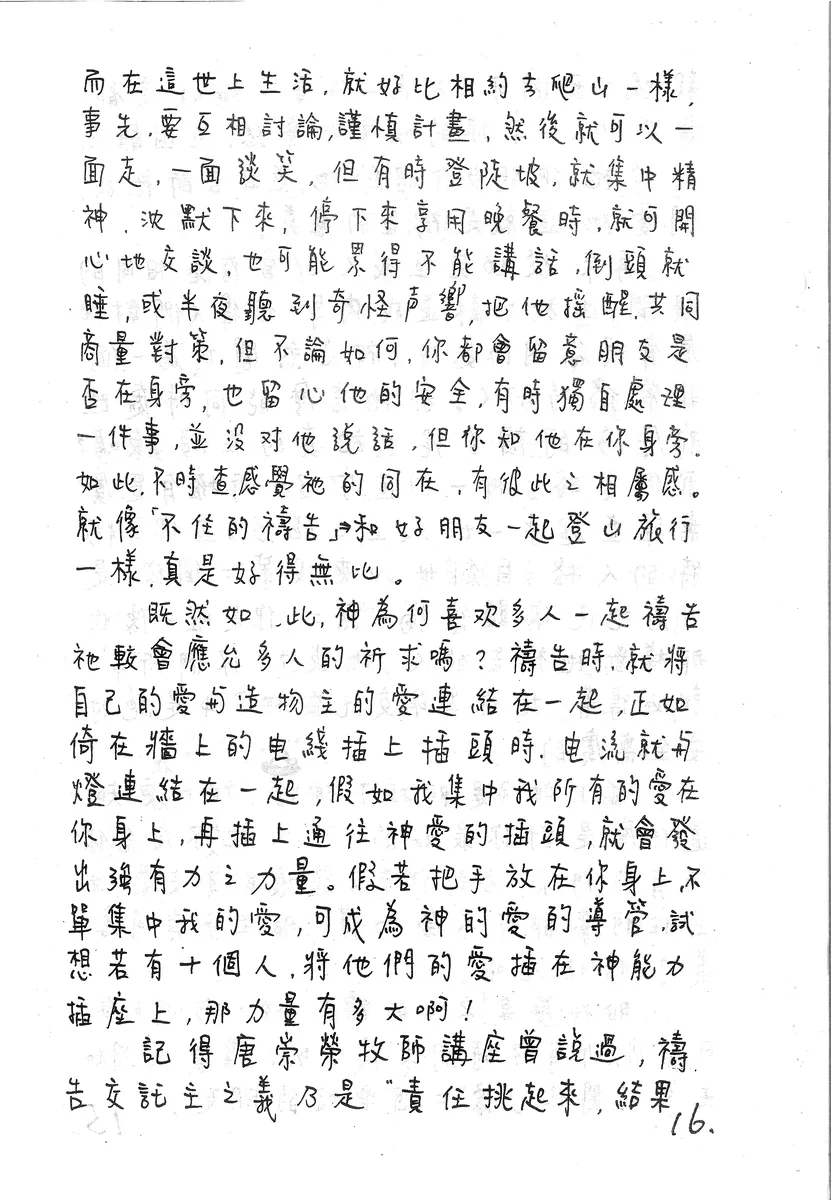 而在這世上生活，就好比相約去爬山一樣，
事先，要互相討論，謹慎計畫，然後就可以一
面走，一面談笑，但有時登陡坡，就集中精
神，沈默下來，停下來享用晚餐時，就可開
心地交談，也可能累得不能講話，倒頭就
睡，或半夜聽到奇怪声響，把他摇醒，共同
商量對策，但不論如何，你都會留意朋友是
否在身旁，也留心他的安全，有時獨自處理
一件事，並没对他説話，但你知他在你身旁，
如此，不時查，感覺祂的同在，有彼此之相屬感。
就像「不住的禱告」⇒和好朋友一起登山旅行
一樣，真是好得無比。
既然如此，神為何喜欢多人一起禱告
祂較會應允多人的祈求嗎？禱告時，就將
自己的愛与造物主的愛連結在一起，正如
倚在牆上的电綫插上插頭時，电流就与
燈連結在一起，假如我集中我所有的愛在
你身上，再插上通往神愛的插頭，就會發
出強有力之力量。假若把手放在你身上，不
單集中我的愛，可成為神的愛的導管，試
想若有十個人，將他們的愛插在神能力
插座上，那力量有多大啊！
記得唐崇榮牧師講座曾說過，禱
告交託主之義乃是“責任挑起來，結果
16.